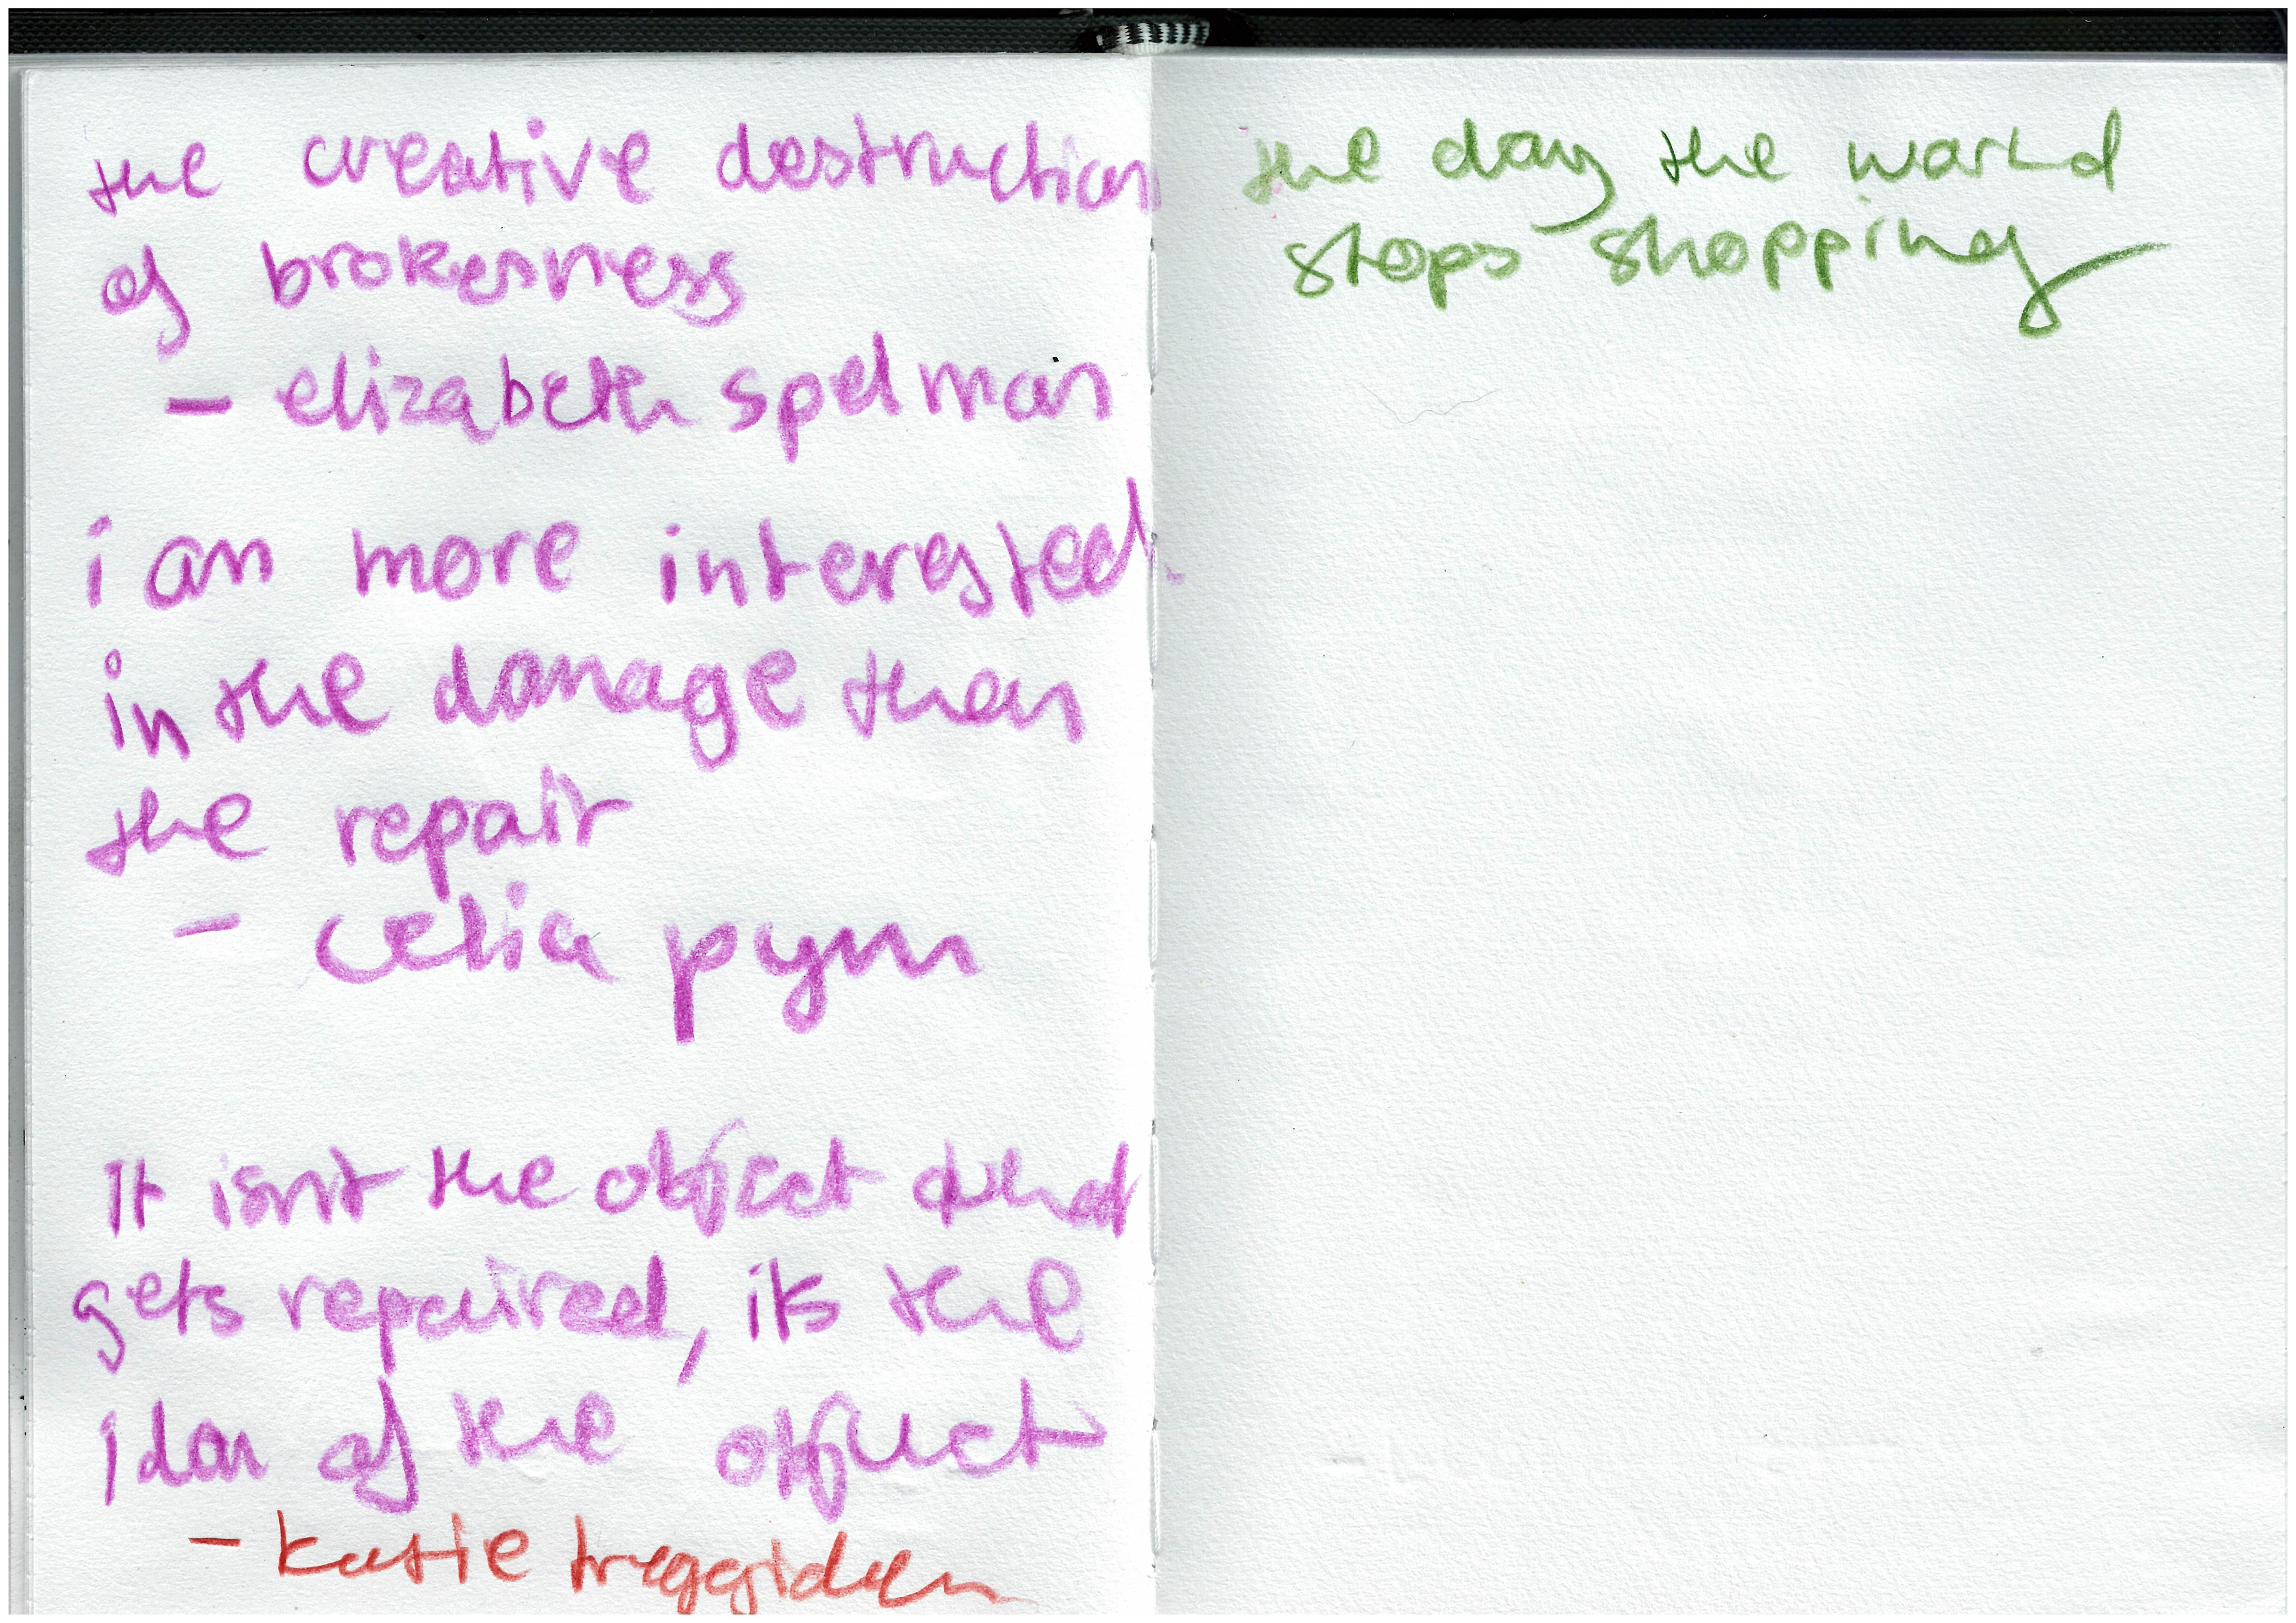 the creative destruction
of brokenness
- elizabeth spelman
i am more interested
in the damage than
the repair
- celia pym
It isnt the object that
gets repaired, its the
idea of the object
- katie treggiden
the day the world
stops shopping